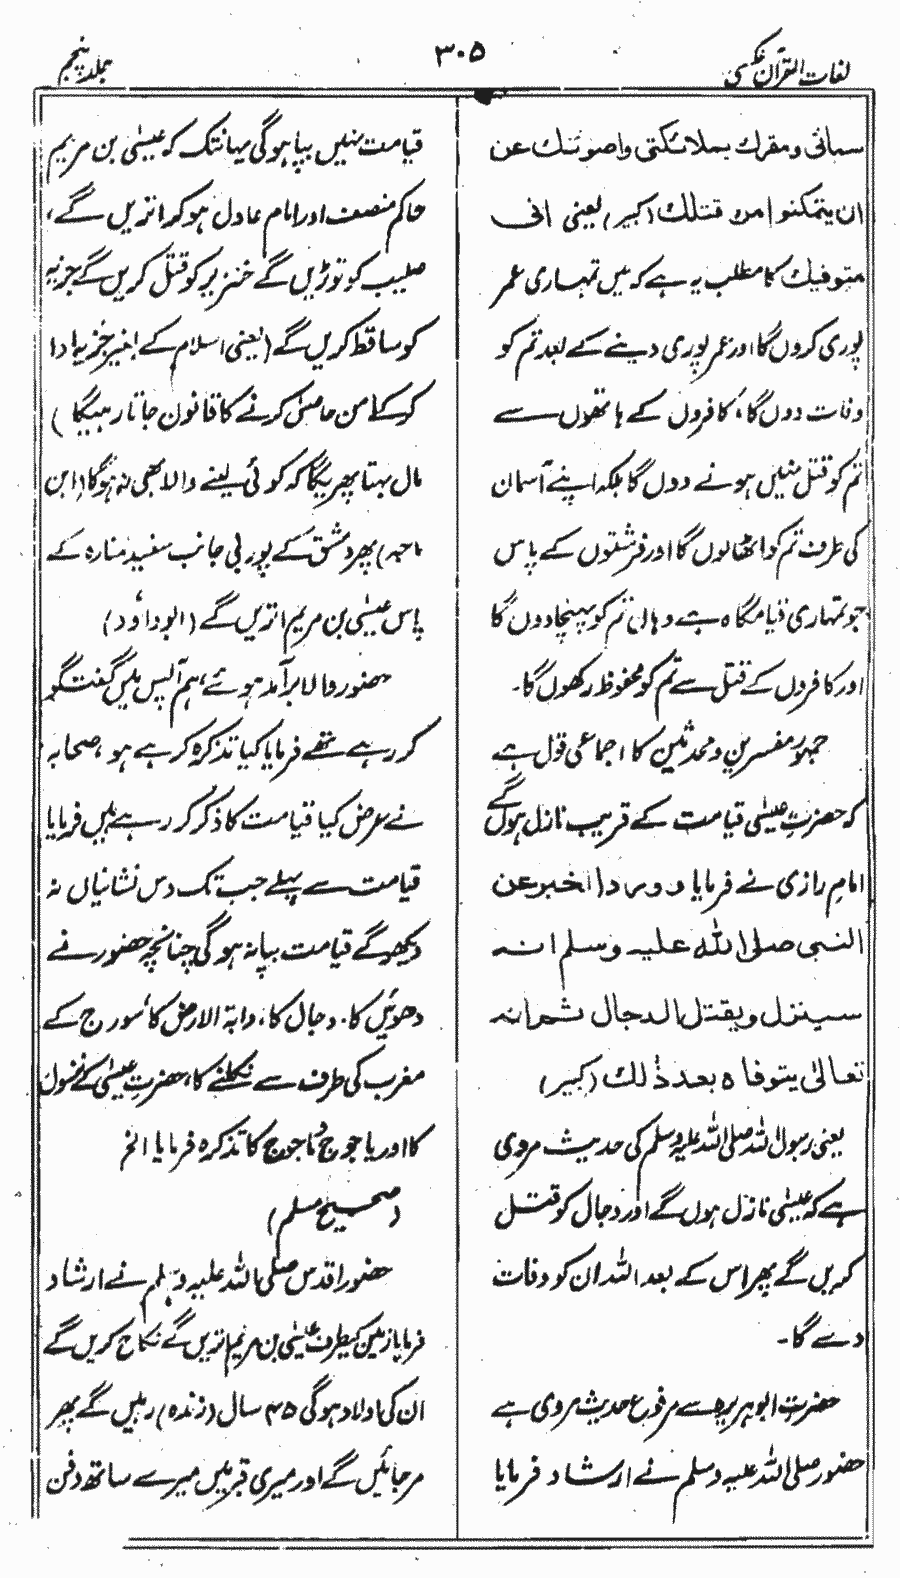 لغات القرآن عکسی
۳۰۵
جلد پنجم
سمائی ومقرك بملائكتی واصونك عن
ان يتمكنوا من قتلك (کبیر) یعنی انی
متوفیك کا مطلب یہ ہے کہ میں تمہاری عمر
پوری کروں گا اور عمر پوری دینے کے بعد تم کو
وفات دوں گا، کافروں کے ہاتھوں سے
تم کو قتل نہیں ہونے دوں گا بلکہ اپنے آسمان
کی طرف تم کو اٹھالوں گا اور فرشتوں کے پاس
جو تمہاری قیامگاہ ہے وہاں تم کو پہنچادوں گا
اور کافروں کے قتل سے تم کو محفوظ رکھوں گا۔
جمہور مفسرین ومحدثین کا اجماعی قول ہے
کہ حضرتِ عیسٰی قیامت کے قریب نازل ہوں گے
امام رازی نے فرمایا وورد الخبر عن
النبی صلی اللہ علیہ وسلم انہ
سینزل ویقتل الدجال ثم انہ
تعالیٰ یتوفاہ بعد ذٰلك (کبیر)
یعنی رسول اللہ صلی اللہ علیہ وسلم کی حدیث مروی
ہے کہ عیسٰی نازل ہوں گے اور دجال کو قتل
کریں گے پھر اس کے بعد اللہ ان کو وفات
دے گا۔
حضرتِ ابوہریرہ سے مرفوع حدیث مروی ہے
حضور صلی اللہ علیہ وسلم نے ارشاد فرمایا
قیامت نہیں بپا ہوگی یہانتک کہ عیسٰی بن مریم
حاکم منصف اور امام عادل ہوکر اتریں گے،
صلیب کو توڑیں گے خنزیر کو قتل کریں گے جزیہ
کو ساقط کریں گے (یعنی اسلام کے بغیر جزیہ ادا
کرکے امن حاصل کرنے کا قانون جاتا رہیگا)
مال بہتا پھریگا کہ کوئی لینے والا بھی نہ ہوگا (ابن
ماجہ) پھر دمشق کے پوربی جانب سفید منارہ کے
پاس عیسٰی بن مریم اتریں گے (ابوداؤد)
حضور والا برآمد ہوئے، ہم آپس میں گفتگو
کررہے تھے فرمایا کیا تذکرہ کررہے ہو، صحابہ
نے عرض کیا قیامت کا ذکر کررہے ہیں فرمایا
قیامت سے پہلے جب تک دس نشانیاں نہ
دیکھو گے قیامت بپا نہ ہوگی چنانچہ حضور نے
دھوئیں کا، دجال کا، دابۃ الارض کا، سورج کے
مغرب کی طرف سے نکلنے کا، حضرتِ عیسٰی کے نزول
کا اور یاجوج ماجوج کا تذکرہ فرمایا الخ
(صحیح مسلم)
حضور اقدس صلی اللہ علیہ وسلم نے ارشاد
فرمایا زمین کیطرف عیسٰی بن مریم اتریں گے نکاح کریں گے
ان کی اولاد ہوگی ۴۵ سال (زندہ) رہیں گے پھر
مرجائیں گے اور میری قبر میں میرے ساتھ دفن